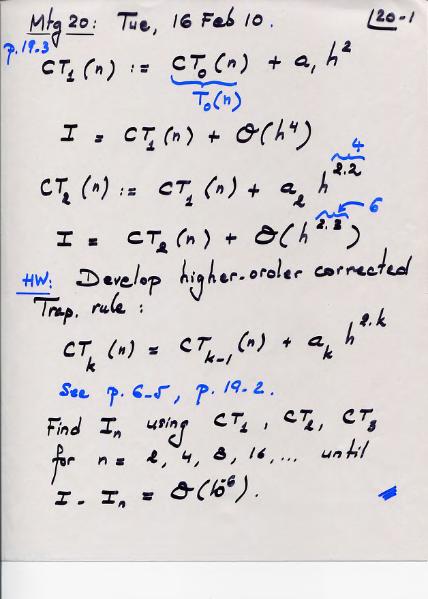 Mtg 20: Tue, 16 Feb 10. 20-1
p.19.3
CT₁(n) := CT₀(n) + a₁h²
T₀(n)
I = CT₁(n) + O(h⁴)
4
CT₂(n) := CT₁(n) + a₂ h^{2.2}
I = CT₂(n) + O(h^{2.3}) 6
HW: Develop higher-order corrected
Trap. rule:
CT_k(n) = CT_{k-1}(n) + a_k h^{2.k}
See p. 6-5, p. 19-2.
Find Iₙ using CT₁, CT₂, CT₃
for n = 2, 4, 8, 16, ... until
I - Iₙ = O(10⁻⁶).